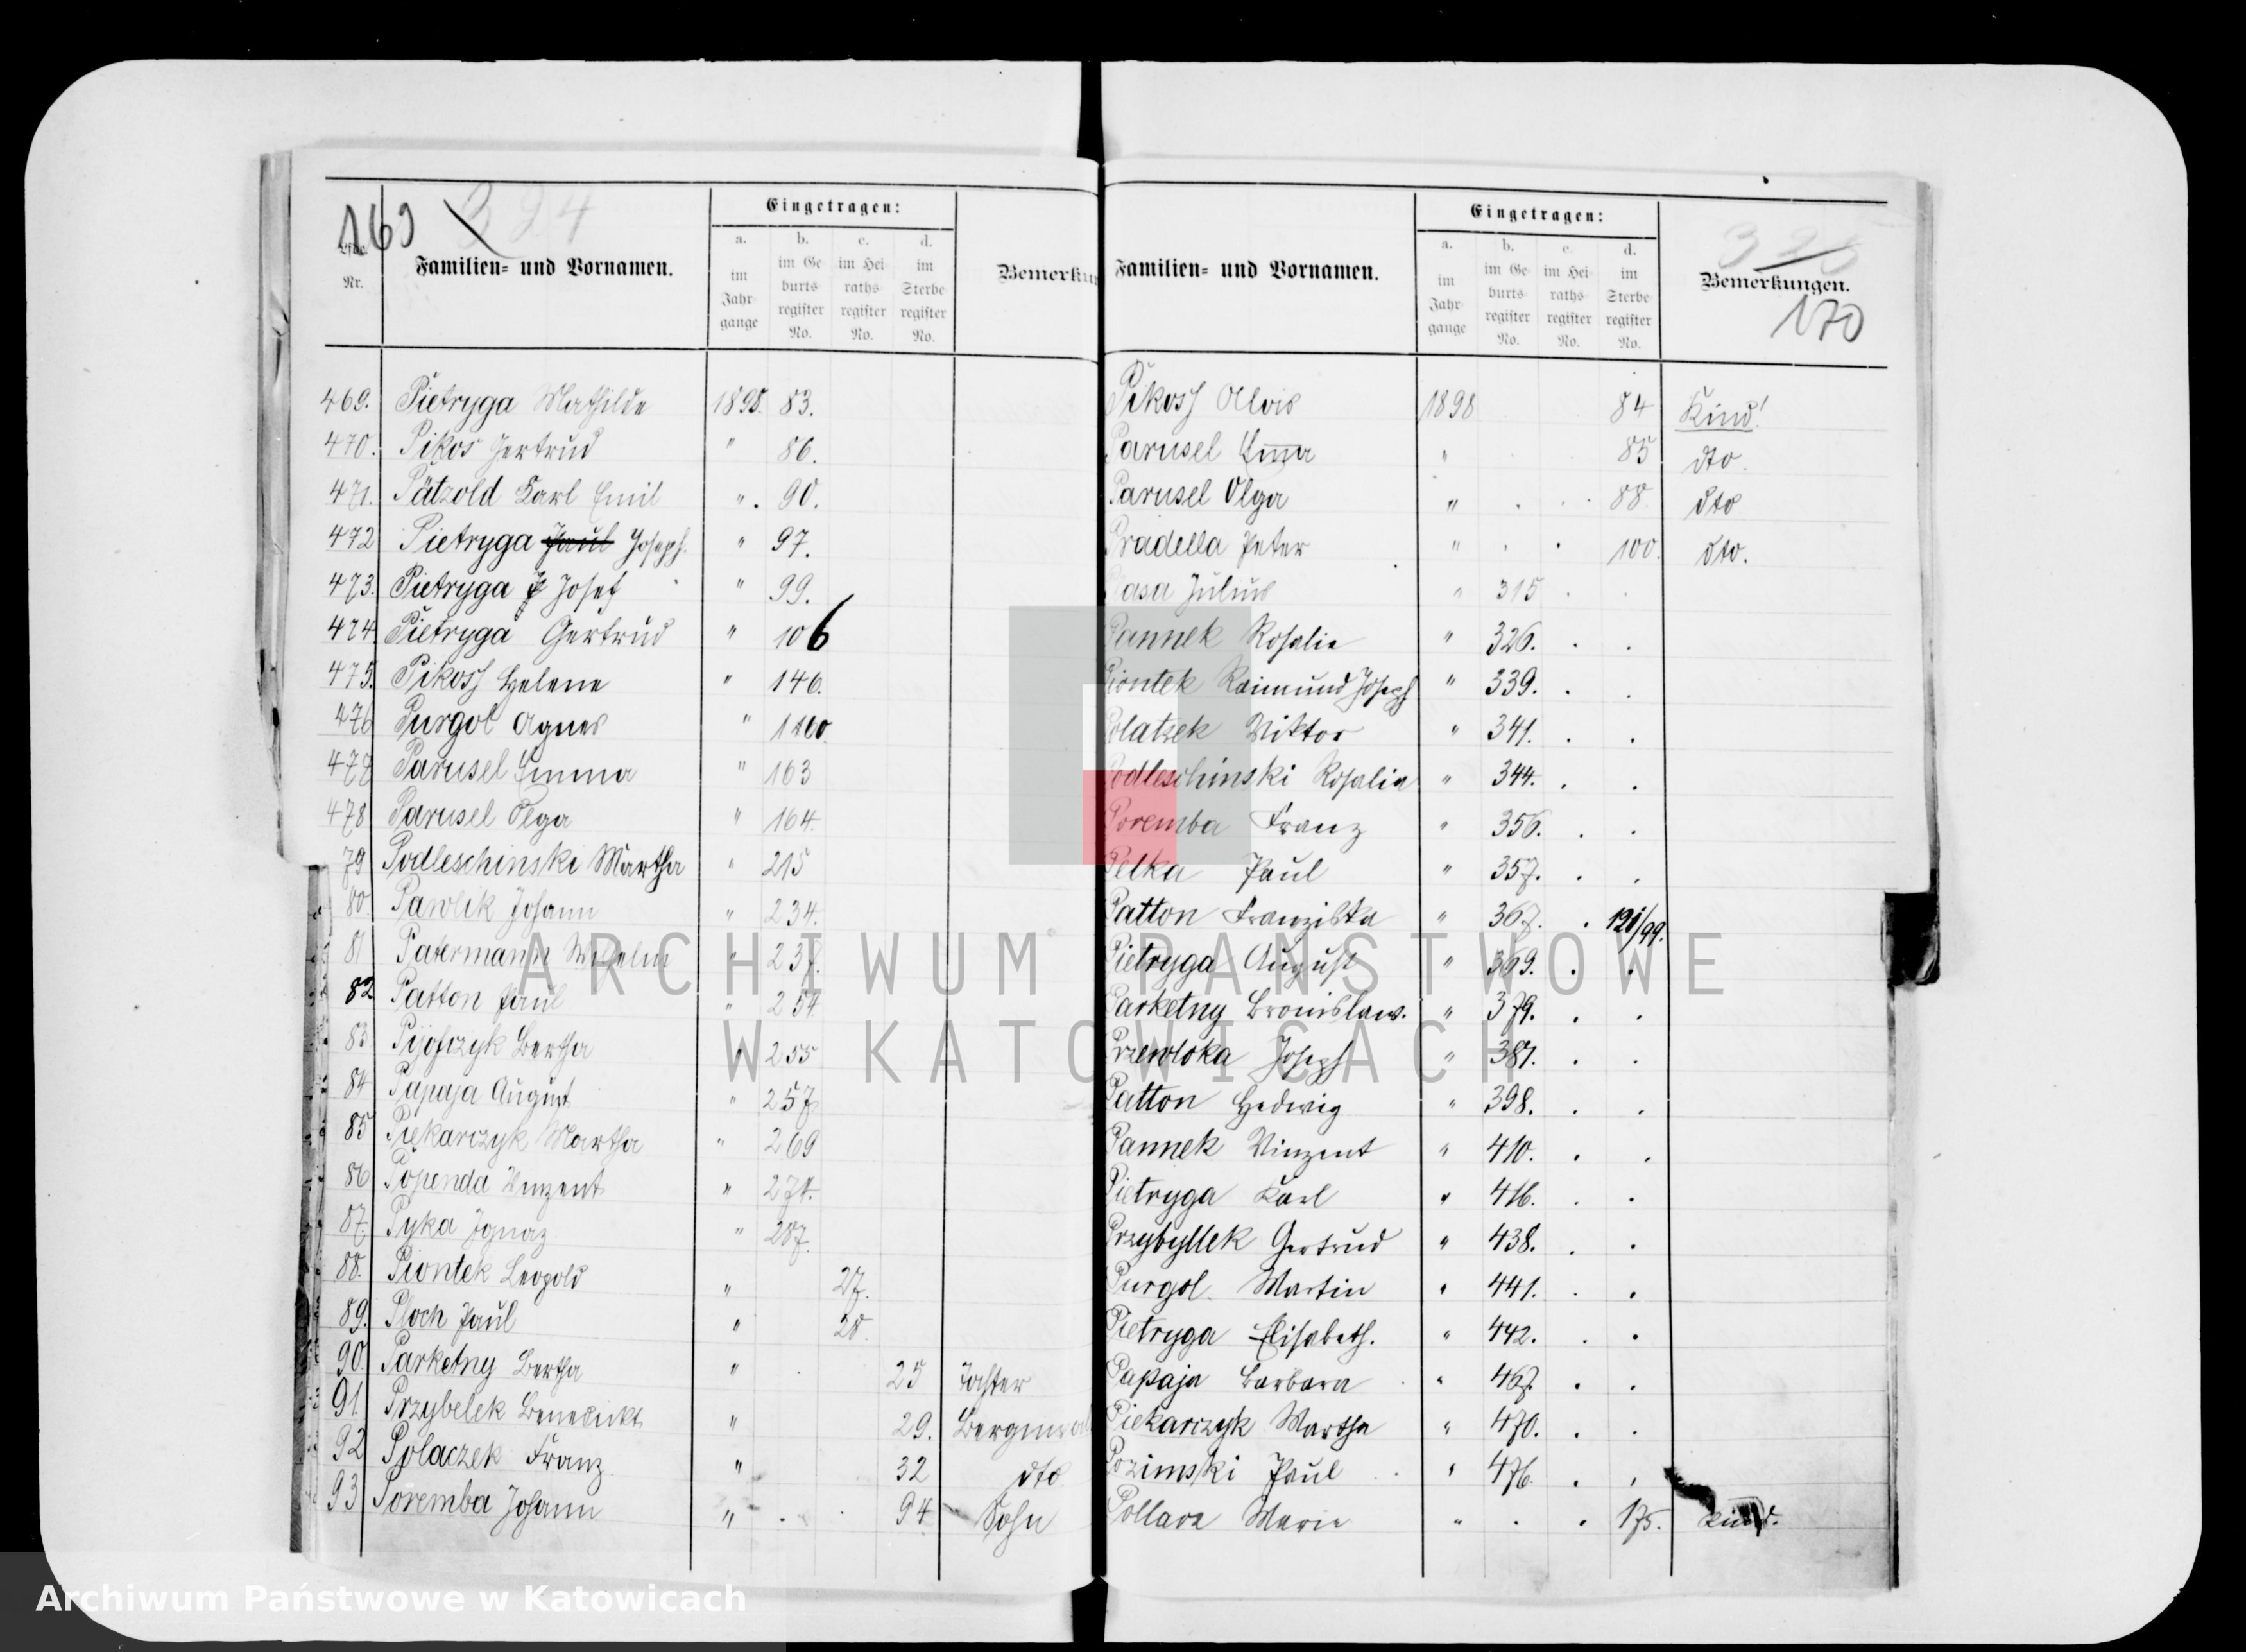 169 324
Lfde. Nr. Familien- und Vornamen. Eingetragen: a. im Jahrgange b. im Geburtsregister No. c. im Heirathsregister No. d. im Sterberegister No. Bemerku
469. Pietryga Mathilde 1898. 83.
470. Pikos Gertrud " 86.
471. Pätzold Karl Emil " . 90.
472 Pietryga Paul Joseph. " 97.
473. Pietryga J Josef " 99.
474 Pietryga Gertrud " 106
475. Pikosz Helene " 146.
476 Purgol Agnes " 160
477 Parusel Emma " 163
478 Parusel Olga " 164.
79 Podleschinski Martha " 215
80 Pawlik Johann " 234.
81 Patermann Wilhelm " 237.
82 Patton Paul " 254
83 Pijofczyk Bertha " 255
84 Papaja August " 257
85 Piekarczyk Martha " 269
86 Popenda Vinzent " 274.
87. Pyka Ignaz " 287.
88. Piontek Leopold " 27.
89. Ploch Paul " 28.
90. Parketny Bertha " 25 Tochter
91. Przybelek Benedikt " 29. Bergm
92 Polaczek Franz " 32 dto
93 Poremba Johann " 94 Sohn
Familien- und Vornamen. Eingetragen: a. im Jahrgange b. im Geburtsregister No. c. im Heirathsregister No. d. im Sterberegister No. Bemerkungen.
170
Pikosz Alois 1898 84 Kind!
Parusel Emma " 85 dto.
Parusel Olga " 88 dto
Pradella Peter " 100. dto.
Pasa Julius " 315
Pannek Rosalie " 326.
Piontek Raimund Joseph " 339.
Polatzek Viktor " 341.
Podleschinski Rosalia " 344.
Poremba Franz " 356.
Pelka Paul " 357.
Patton Franziska " 367. 121/99.
Pietryga August " 369.
Parketny Bronislaw. " 379.
Przewloka Joseph " 387.
Patton Hedwig " 398.
Pannek Vinzent " 410.
Pietryga Karl " 416.
Przybyllek Gertrud " 438.
Purgol Martin " 441.
Pietryga Elisabeth. " 442.
Papaja Barbara " 467.
Piekarczyk Martha " 470.
Pozimski Paul " 476.
Pollara Marie " 175. Kind.
ARCHIWUM PAŃSTWOWE
W KATOWICACH
Archiwum Państwowe w Katowicach